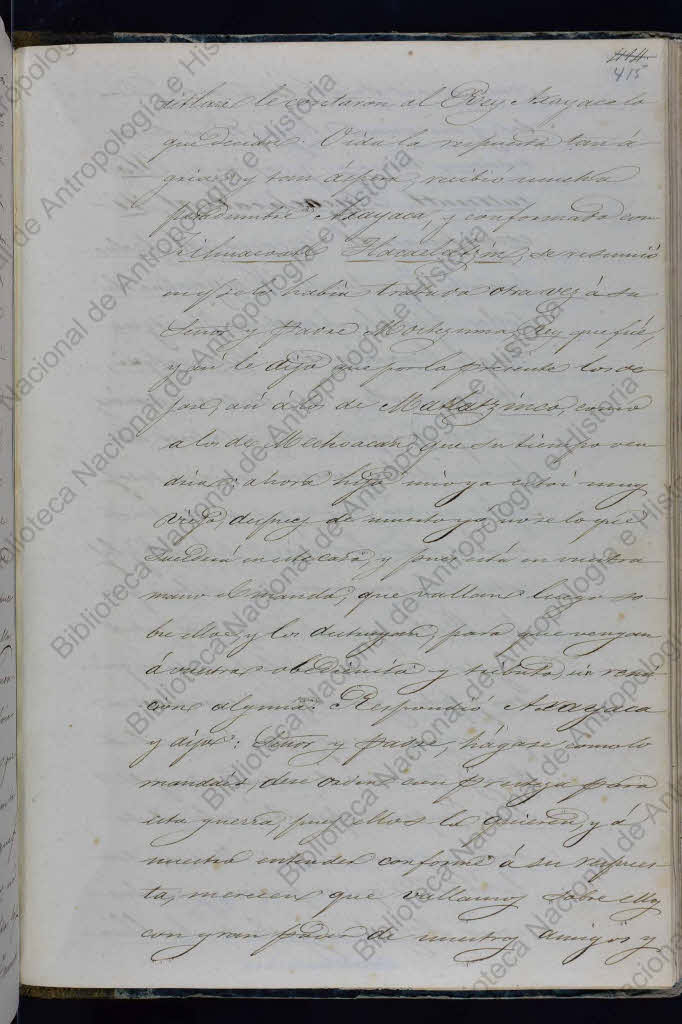 415
titlan le contaron al Rey Axayaca lo
que decian. Oida la respuesta tan á-
gria y tan áspera, recibió mucha
pesadumbre Axayaca, y conformado con
Cihuacoatl Tlacaeleltzin, se resumió
en q.e se lo había tratado otra vez á su
Señor y padre Moctezuma, Rey que fué,
y así le dijo que por la presente los de-
jase, así á los de Matlatzinco, como
a los de Mechoacan, que su tiempo ven-
dria: ahora hijo mio ya estoi muy
viejo, despues de muerto yo, no se lo que
sucederá en este caso, y pues está en vuestra
mano el mando, que vallan luego so-
bre ellos, y los destruyan, para que vengan
á vuestra obediencia y tributo, sin remi-
cion alguna. Respondió Axayaca
y dijo: Señor y padre, hágase como lo
mandais, dese orden con presteza para
esta guerra, pues ellos la quieren, y á
nuestro entender conforme á su respues-
ta, merecen que vallamos sobre ellos
con gran poder de nuestros amigos y
Biblioteca Nacional de Antropología e Historia